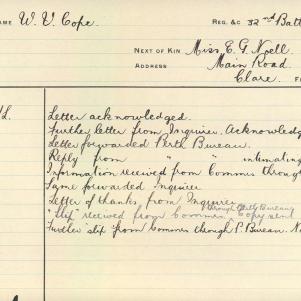 NAME W. V. Cope.
REG. &C 32nd Batt
NEXT OF KIN Miss E. G. Noell
ADDRESS Main Road
Clare.
Letter acknowledged.
Further letter from Inquirer. Acknowledg
Letter forwarded Perth Bureau.
Reply from " " intimating
Information received from Commrs through
Same forwarded Inquirer
Letter of thanks from Inquirer
through Bureau
"Slip" received from Commrs, Copy sent
Further slip from Commrs through P. Bureau. N